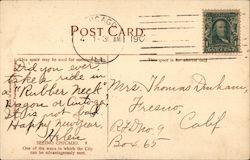 CHICAGO
POST CARD.
This space may be used for
This space is for
Did you ever
take a ride in
a "Rubber Neck"
Wagon or Autog.
It is not bad
Happy new year,
Helen
SEEING CHICAGO.
One of the ways in which the City
can be advantageously seen.
Mrs. Thomas Dunham,
Fresno,
R.F.D. no 9 Calif
Box. 65